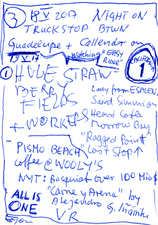 ③ 18 V 2017 NIGHT ON
TRUCKSTOP BTWN
Guadelupe + Callender on
19 V 17 Watching "EASY RIDER"
1
① HUGE STRAW
BERRY
FIELDS
+ WORKERS
Lady from ESALEN,
Sand Simmion
Hearst Castle
Morrow Bay
"Ragged Point"
Last Stop ↑
- PISMO BEACH
Coffee @ WOOLY'S
NYT: Basquiat over 100 Mio $
"Carne y Arena" by
Alejandro G. Iñárritu
VR
ALL IS
ONE